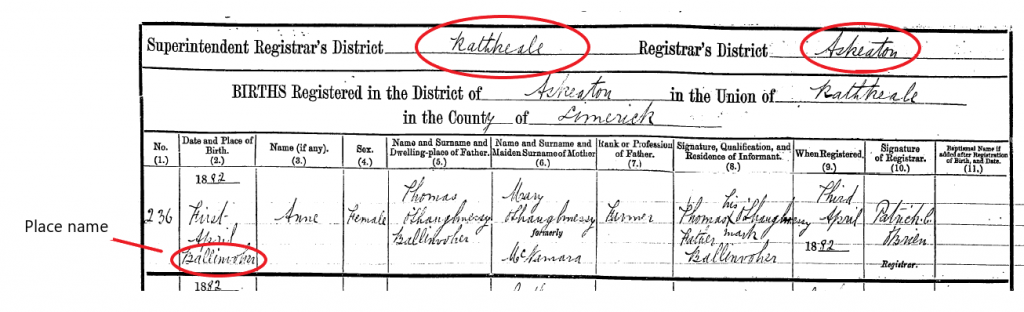 Superintendent Registrar's District Rathkeale Registrar's District Askeaton
BIRTHS Registered in the District of Askeaton in the Union of Rathkeale
in the County of Limerick
No. (1.)
Date and Place of Birth. (2.)
Name (if any). (3.)
Sex. (4.)
Name and Surname and Dwelling-place of Father. (5.)
Name and Surname and Maiden Surname of Mother (6.)
Rank or Profession of Father. (7.)
Signature, Qualification, and Residence of Informant. (8.)
When Registered. (9.)
Signature of Registrar. (10.)
Baptismal Name if added after Registration of Birth, and Date. (11.)
236
1882
First
April
Ballinvoher
Anne
Female
Thomas
O'Shaughnessy
Ballinvoher
Mary
O'Shaughnessy
formerly
McNamara
Farmer
his
Thomas X O'Shaughnessy
Father mark
Ballinvoher
Third
April
1882
Patrick C.
O'Brien
Registrar.
Place name
1882